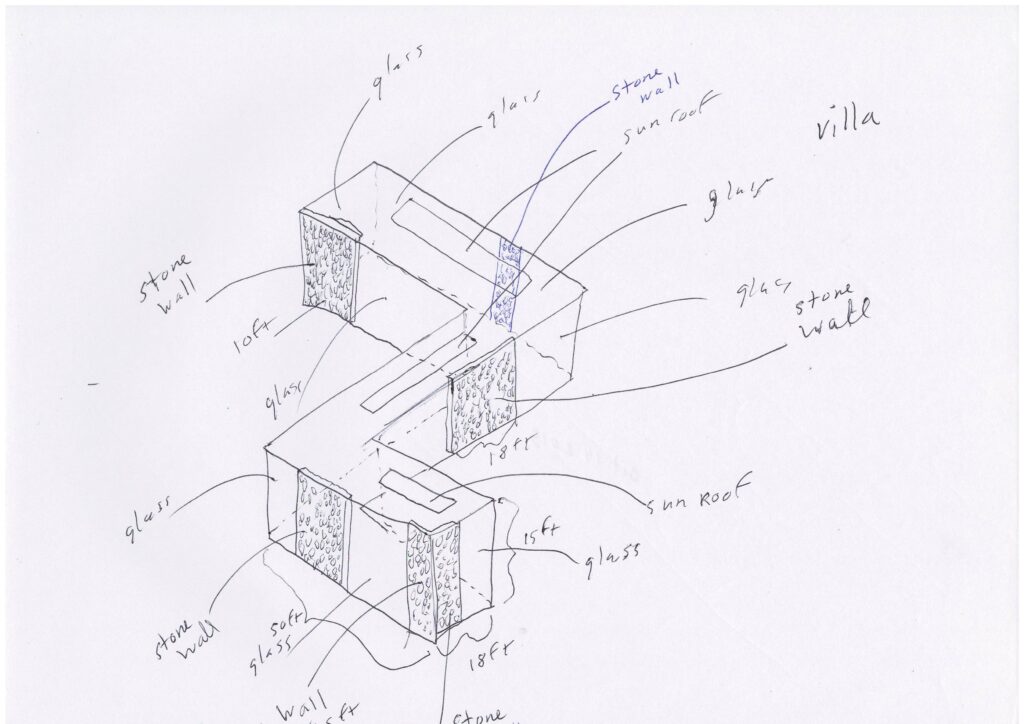 glass
glass
stone
wall
sun roof
villa
glass
stone
wall
glass
stone
wall
10ft
glass
18ft
sun Roof
glass
15ft
glass
stone
wall
50ft
glass
18ft
wall
stone